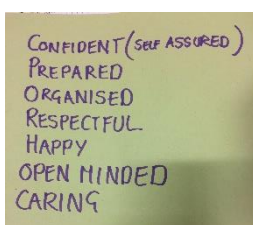 CONFIDENT (SELF ASSURED)
PREPARED
ORGANISED
RESPECTFUL
HAPPY
OPEN MINDED
CARING